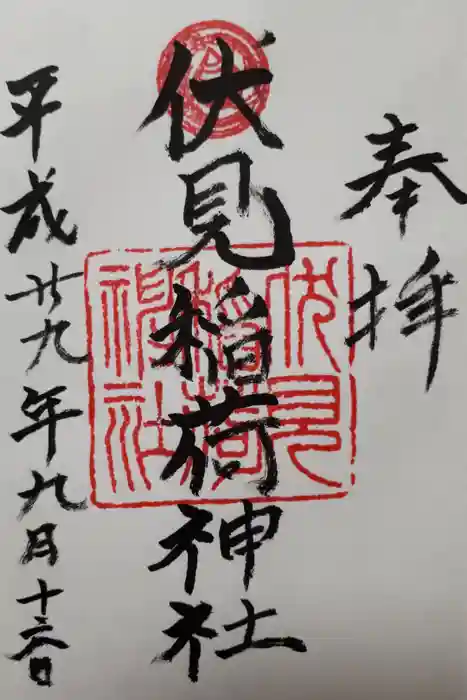 奉拝
伏見稲荷神社
伏見稲荷神社
平成廿九年九月十六日